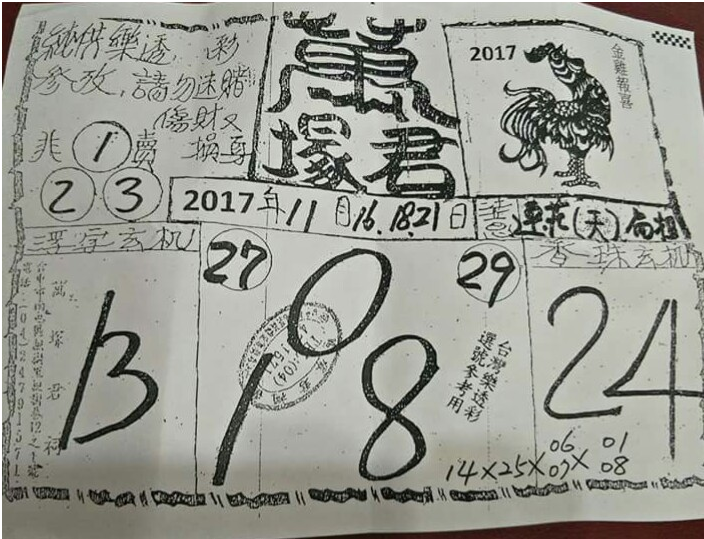 純供樂透彩
參考,請勿迷賭
傷財又
非 1 賣 損身
2 3
萬
塚君
2017
金雞報喜
2017年11月16.18.21日
浮字玄机
27
29
香珠玄机
萬塚君祠
13
0
1 8
24
台灣樂透彩
選號參考用
14×25×06 07×01 08